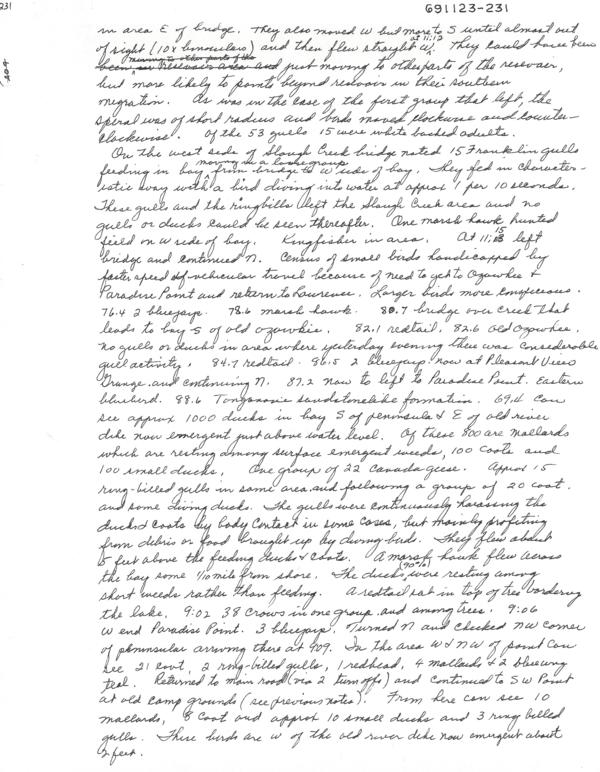 691123-231
231
in area E of bridge. They also moved W but more to S until almost out
at 11:13
of sight (10x binoculars) and then flew straight W. They could have been
moving to other parts of the
been in Reservoir area and just moving to other parts of the resovair,
but more likely to points beyond resovoir in their southern
migration. As was in the case of the first group that left, the
speral was of short radius and birds moved clockwise and counter-
clockwise. Of the 53 gulls 15 were white backed adults.
On the west side of Slough Creek bridge noted 15 Franklin gulls
moving in a loose group
feeding in bay from bridge to W side of bay. They fed in character-
istic way with a bird diving into water at approx 1 per 10 seconds.
These gulls and the ringbills left the Slough Creek area and no
gulls or ducks could be seen thereafter. One marsh hawk hunted
field on W side of bay. Kingfisher in area. At 11:15 left
bridge and continued N. Census of small birds handicapped by
faster speed of vehicular travel because of need to get to Ozawkie +
Paradise Point and return to Lawrence. Larger birds more conspicuous.
76.4 2 bluejays. 78.6 marsh hawk. 80.7 bridge over creek that
leads to bay S of old ozawkie. 82.1 redtail. 82.6 old Ozawkee.
no gulls or ducks in area where yesterday evening there was considerable
gull activity. 84.7 redtail. 86.5 2 bluejays now at Pleasant View
Grange and continuing N. 87.2 now to left to Paradise Point. Eastern
bluebird. 88.6 Tonganoxie sandstonelike formation. 89.4 Can
see approx 1000 ducks in bay S of peninsula & E of old river
dike now emergent just above water level. Of these 800 are mallards
which are resting among surface emergent weeds, 100 coots and
100 small ducks. One group of 22 Canada geese. Approx 15
ring-billed gulls in same area and following a group of 20 coot.
and some diving ducks. The gulls were continuously harassing the
ducks & coots by body contact in some cases, but mainly profiting
from debris or food brought up by diving birds. They flew about
5 feet above the feeding ducks & coots. A marsh hawk flew across
(90%)
the bay some 1/10 mile from shore. The ducks were resting among
short weeds rather than feeding. A redtail sat in top of tree bordering
the lake. 9:02 38 crows in one group and among trees. 9:06
W end Paradise Point. 3 bluejays. Turned N and checked NW corner
of peninsular arriving there at 909. In the area W & NW of point can
see 21 coot, 2 ring-billed gulls, 1 redhead, 4 mallards & 2 bluewing
teal. Returned to main road (via 2 turnoffs) and continued to SW Point
at old camp grounds (see previous notes). From here can see 10
mallards, 8 coot and approx 10 small ducks and 3 ring billed
gulls. These birds are W of the old river dike now emergent about
2 feet.